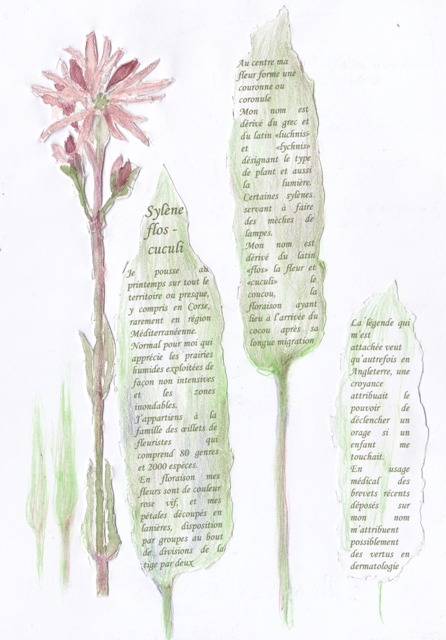 Sylène
flos -
cuculi
Je pousse au
printemps sur tout le
territoire ou presque,
y compris en Corse,
rarement en région
Méditerranéenne.
Normal pour moi qui
apprécie les prairies
humides exploitées de
façon non intensives
et les zones
inondables.
J'appartiens à la
famille des œillets de
fleuristes qui
comprend 80 genres
et 2000 espèces.
En floraison mes
fleurs sont de couleur
rose vif, et mes
pétales découpés en
lanières, disposition
par groupes au bout
de divisions de la
tige par deux
Au centre ma
fleur forme une
couronne ou
coronule
Mon nom est
dérivé du grec et
du latin «luchnis»
et «lychnis»
désignant le type
de plant et aussi
la lumière.
Certaines sylènes
servant à faire
des mèches de
lampes.
Mon nom est
dérivé du latin
«flos» la fleur et
«cuculi» le
coucou, la
floraison ayant
lieu à l'arrivée du
cocou après sa
longue migration
La légende qui
m'est
attachée veut
qu'autrefois en
Angleterre, une
croyance
attribuait le
pouvoir de
déclencher un
orage si un
enfant me
touchait.
En usage
médical des
brevets récents
déposés sur
mon nom
m'attribuent
possiblement
des vertus en
dermatologie